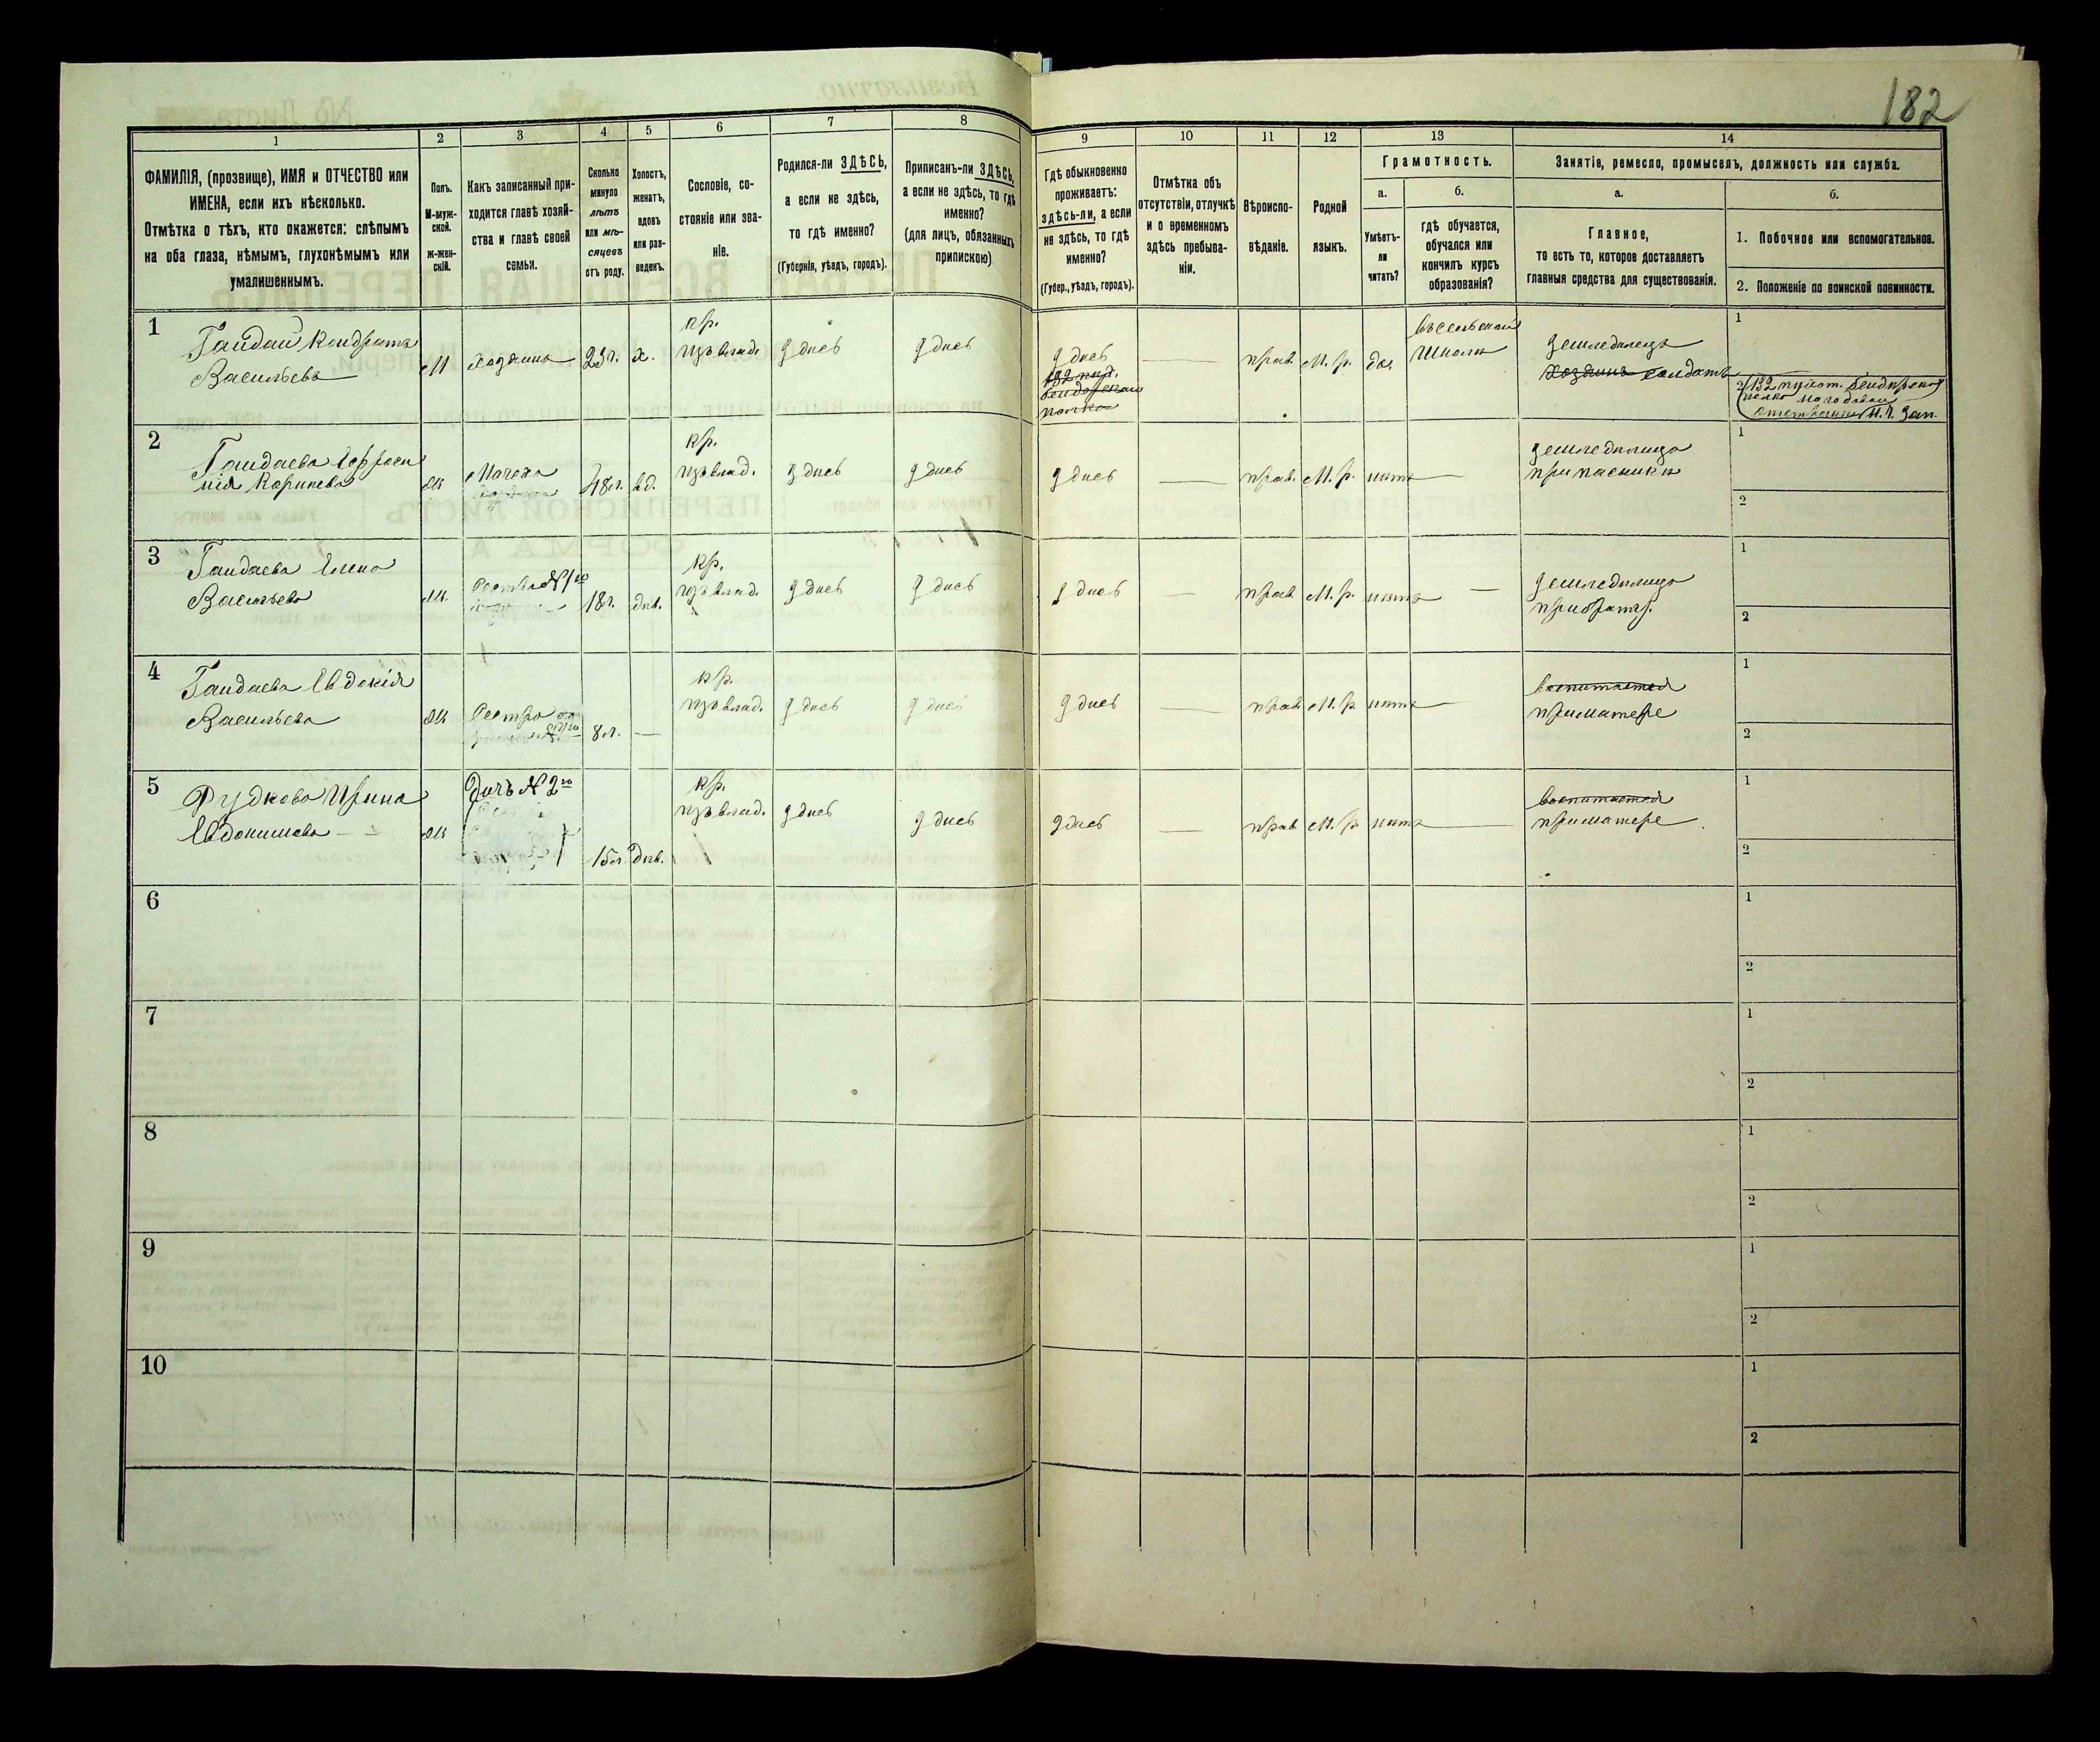 182
1
2
3
4
5
6
7
8
9
10
11
12
13
14
ФАМИЛІЯ, (прозвище), ИМЯ и ОТЧЕСТВО или
ИМЕНА, если ихъ нѣсколько.
Отмѣтка о тѣхъ, кто окажется: слѣпымъ
на оба глаза, нѣмымъ, глухонѣмымъ или
умалишеннымъ.
Полъ.
М-муж-
ской.
ж-жен-
скій.
Какъ записанный при-
ходится главѣ хозяй-
ства и главѣ своей
семьи.
Сколько
минуло
лѣтъ
или мѣ-
сяцевъ
отъ роду.
Холостъ,
женатъ,
вдовъ
или раз-
веденъ.
Сословіе, со-
стояніе или зва-
ніе.
Родился-ли ЗДѢСЬ,
а если не здѣсь,
то гдѣ именно?
(Губернія, уѣздъ, городъ).
Приписанъ-ли ЗДѢСЬ,
а если не здѣсь, то гдѣ
именно?
(для лицъ, обязанныхъ
припискою)
Гдѣ обыкновенно
проживаетъ:
здѣсь-ли, а если
не здѣсь, то гдѣ
именно?
(Губер., уѣздъ, городъ).
Отмѣтка объ
отсутствіи, отлучкѣ
и о временномъ
здѣсь пребыва-
ніи.
Вѣроиспо-
вѣданіе.
Родной
языкъ.
Грамотность.
а.
б.
Умѣетъ-
ли
читать?
гдѣ обучается,
обучался или
кончилъ курсъ
образованія?
Занятіе, ремесло, промыселъ, должность или служба.
а.
б.
Главное,
то есть то, которое доставляетъ
главныя средства для существованія.
1. Побочное или вспомогательное.
2. Положеніе по воинской повинности.
1
Гайдай Кондратъ
Васильевъ
М
хозяинъ
23 г.
х.
кр.
изъ влад.
здѣсь
здѣсь
здѣсь
132 пѣх.
Бендерскаго
полка
прав.
М. р.
да.
въ сельской
школѣ
земледѣлецъ
хозяинъ солдатъ
1
2
132 пѣхот. Бендерскаго
полка
2
Гайдаева Ефросинія
ж
Мачеха
48 л.
вд.
кр.
изъ влад.
здѣсь
здѣсь
здѣсь
прав.
М. р.
нѣтъ
земледѣлица
при пасынкѣ
1
2
3
Гайдаева Елена
Васильева
ж.
Сестра №1го
18 л.
дѣв.
кр.
изъ влад.
здѣсь
здѣсь
здѣсь
прав.
М. р.
нѣтъ
земледѣлица
при братѣ.
1
2
4
Гайдаева Евдокія
Васильева
ж
Сестра
8 л.
кр.
изъ влад.
здѣсь
здѣсь
здѣсь
прав.
М. р.
нѣтъ
воспитается
при матере
1
2
5
Рудкова Ирина
Евдокимова
ж
Дочь №2го
15 л.
дѣв.
кр.
изъ влад.
здѣсь
здѣсь
здѣсь
прав.
М. р.
нѣтъ
воспитается
при матере
1
2
6
1
2
7
1
2
8
1
2
9
1
2
10
1
2